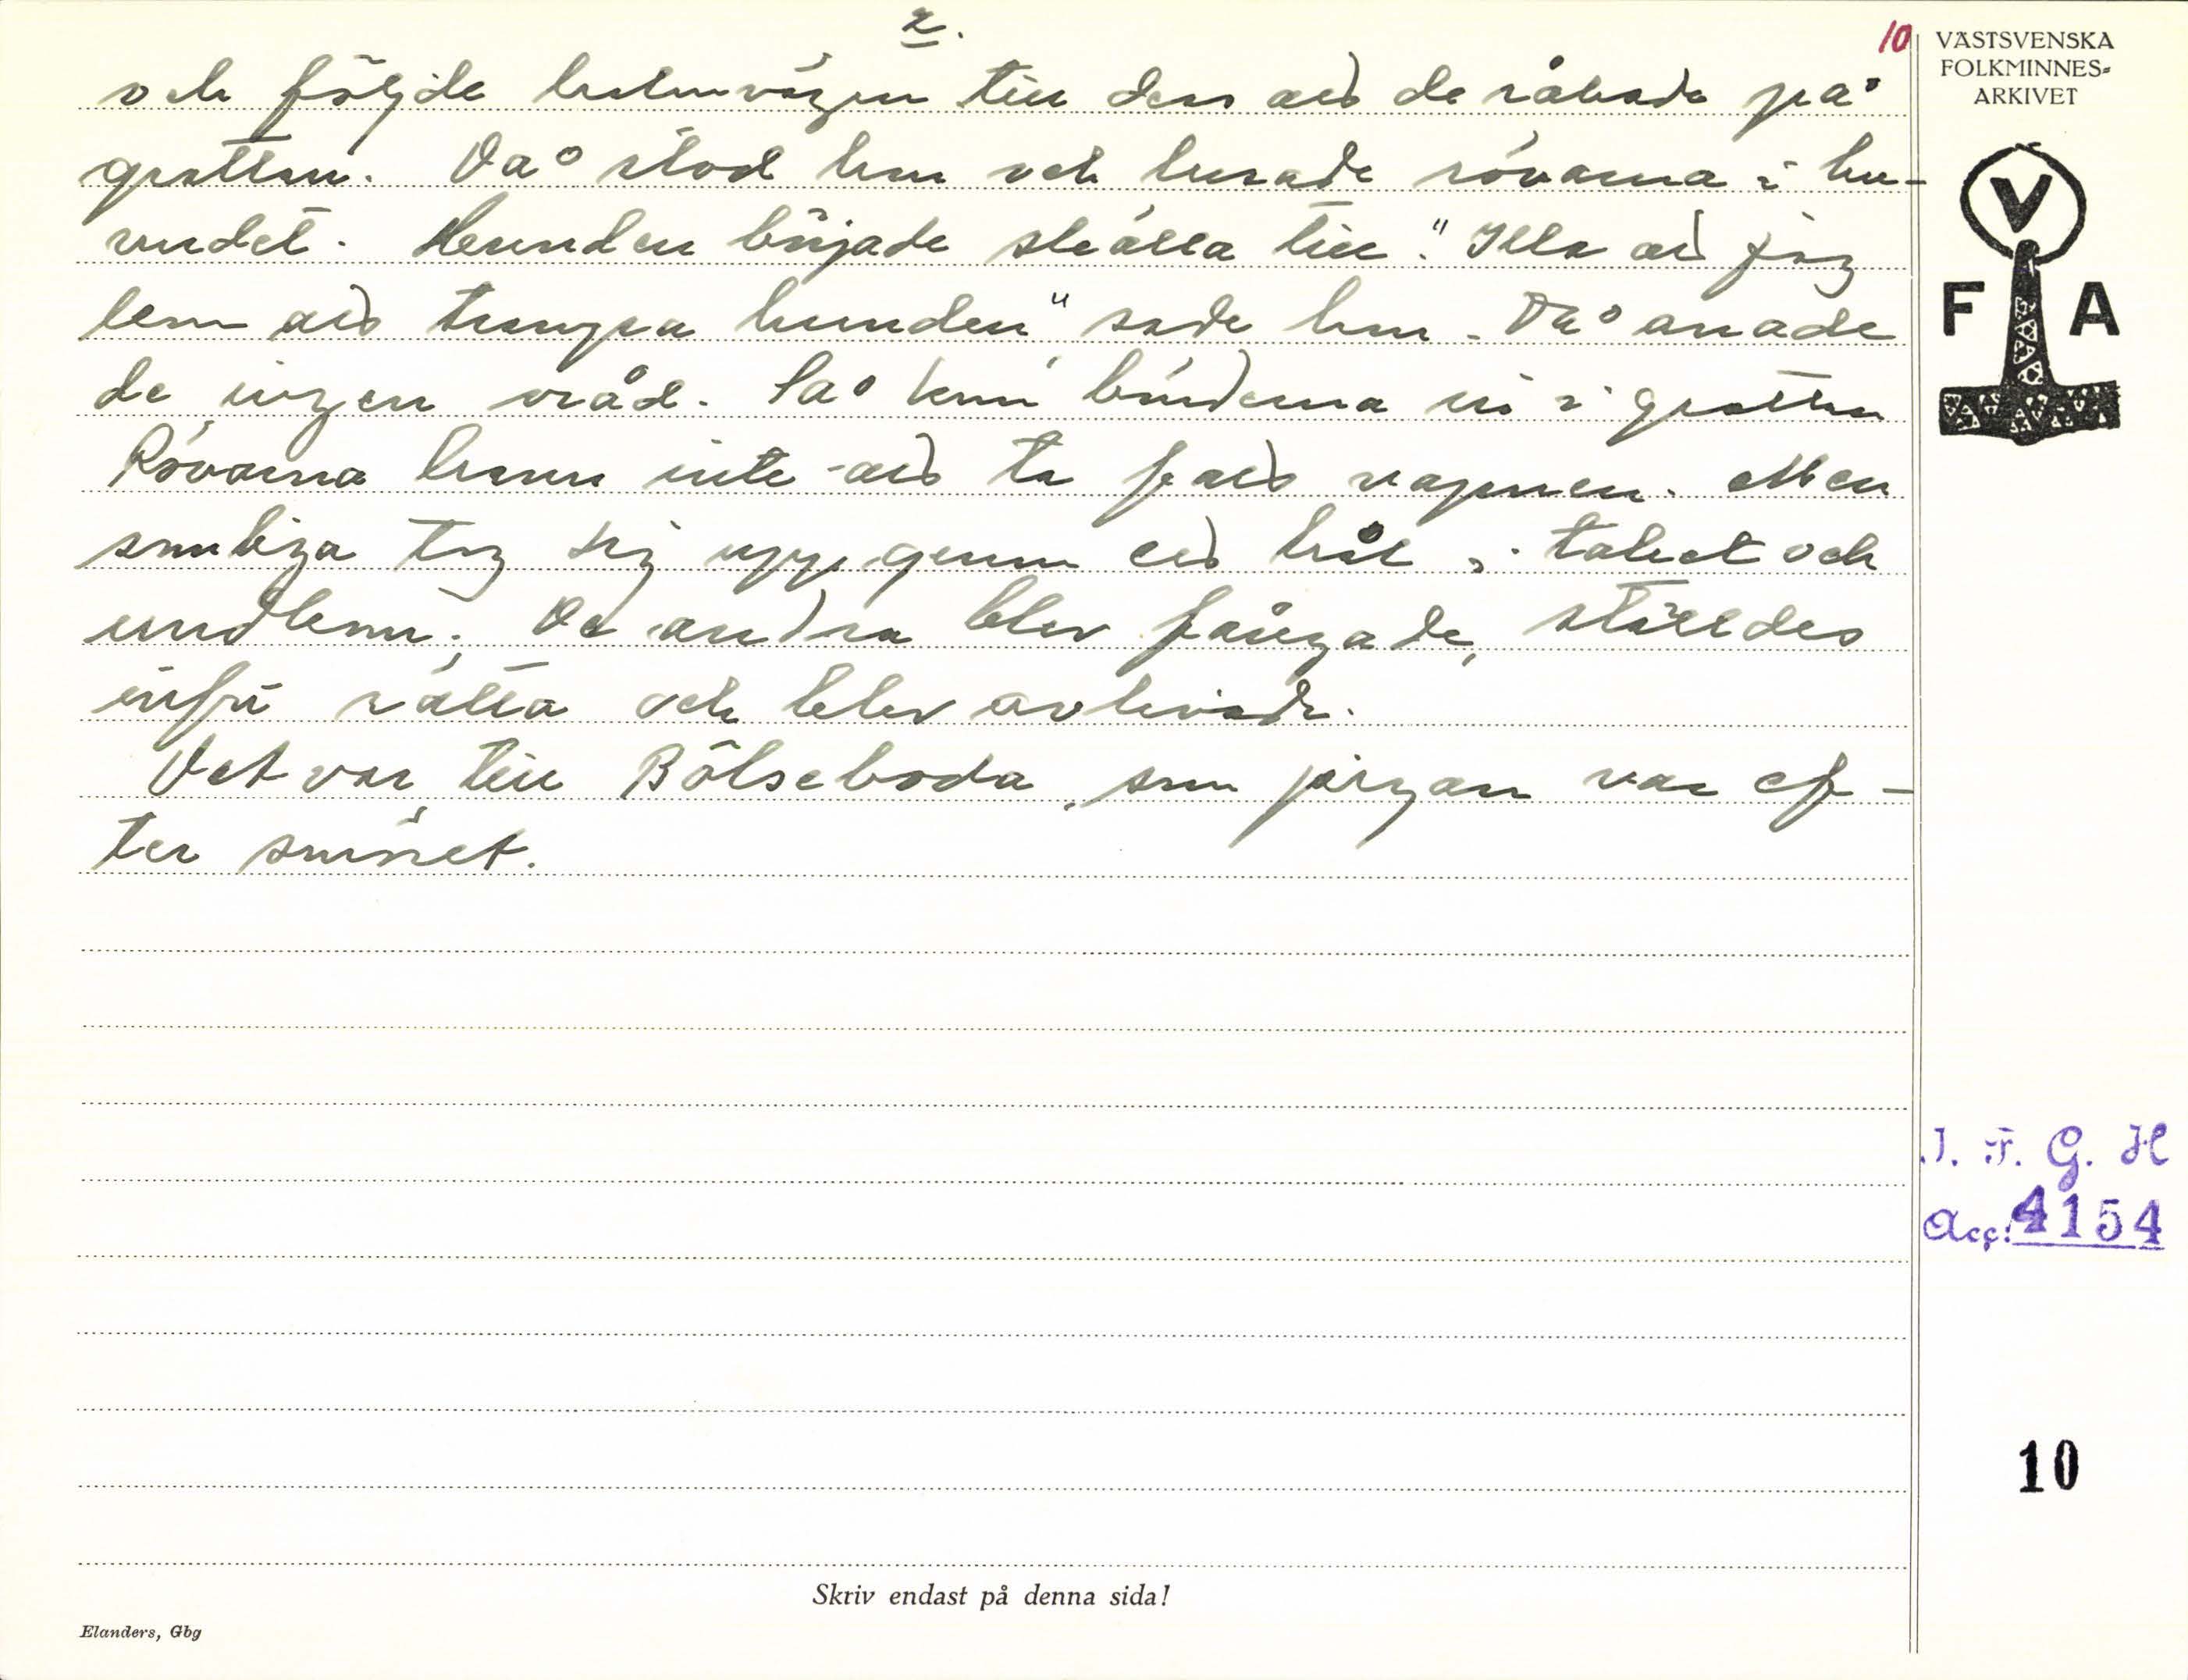 2.
10
och följde halmvägen till dess att de råkade på
grottan. Då stod hon och lusade rövarna i hu-
vudet. Hunden började skälla till. "Illa att jag
kom att trampa hunden" sade hon. Då anade
de ingen oråd. Så kom bönderna in i grottan
Rövarna hann inte att ta fatt vapnen. Men
somliga tog sig upp genom ett hål i taket och
undkom. De andra blev fångade, ställdes
inför rätta och blev avlivade.
Det var till Bölseboda som pigan var ef-
ter smöret.
VÄSTSVENSKA
FOLKMINNES-
ARKIVET
V
F A
I. F. G. H
Acc: 4154
10
Skriv endast på denna sida!
Elanders, Gbg